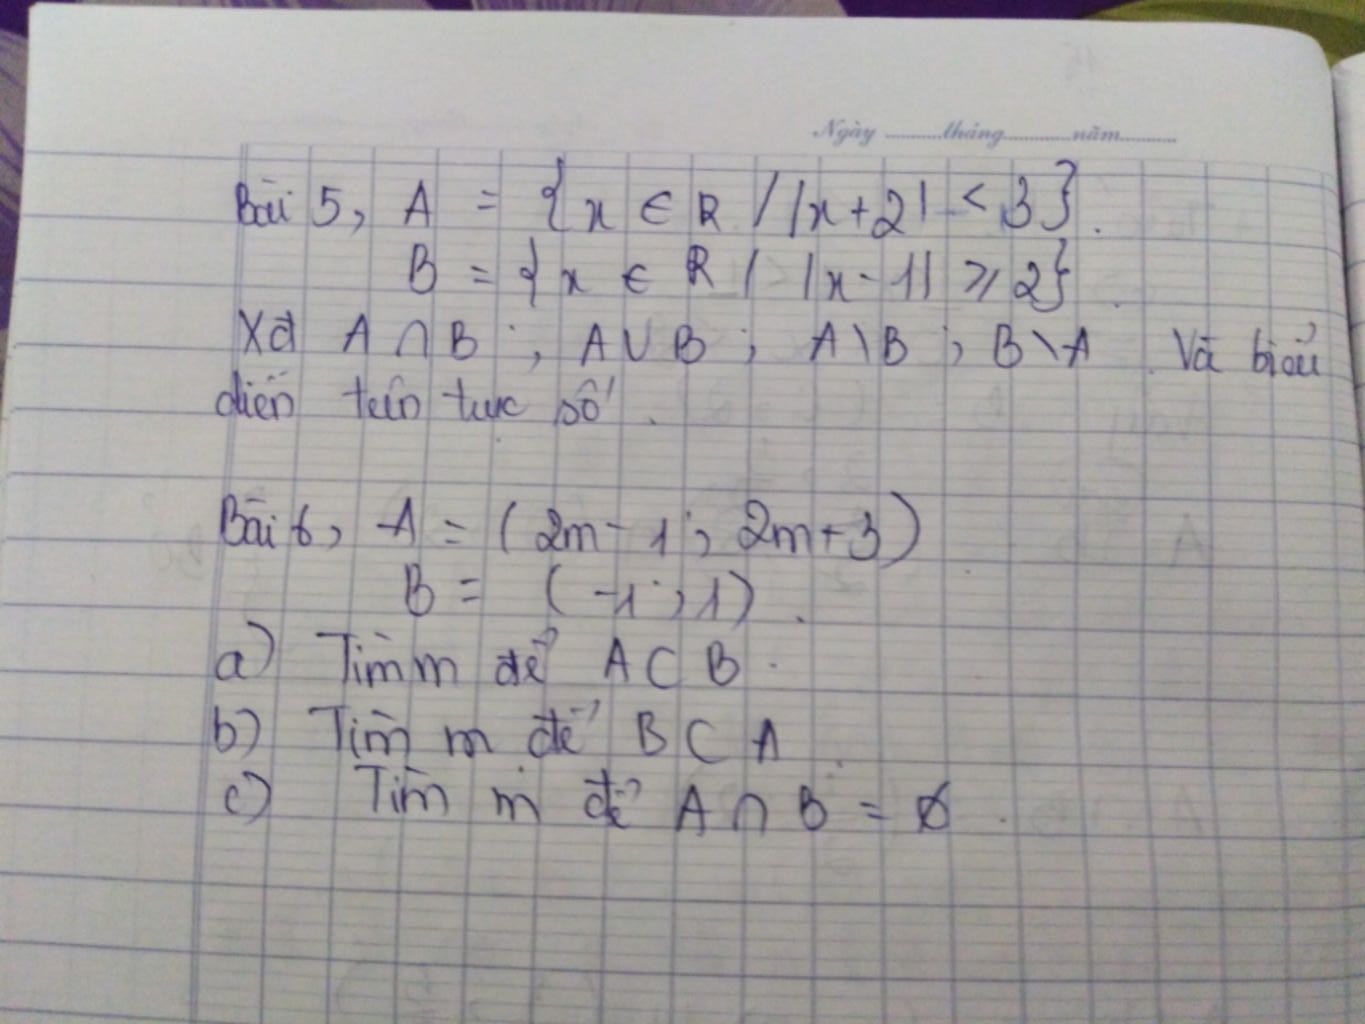 Ngày ........tháng.........năm.........
Bài 5, A = {x ∈ R / |x+2| < 3}.
B = {x ∈ R / |x-1| ≥ 2}
Xđ A ∩ B ; A ∪ B ; A \ B ; B \ A. Và biểu
diễn trên trục số.
Bài 6, A = (2m-1 ; 2m+3)
B = (-1 ; 1).
a) Tìm m để A ⊂ B.
b) Tìm m để B ⊂ A
c) Tìm m để A ∩ B = ∅.